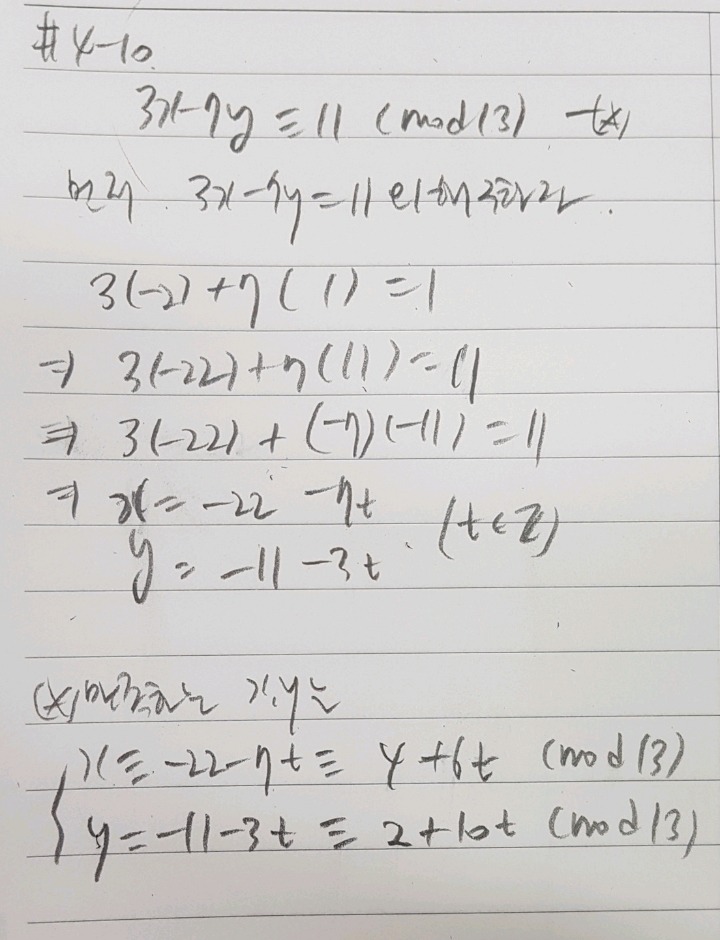 #4-10.
3x-7y ≡ 11 (mod 13) -(*)
먼저. 3x-7y=11의 해 구하라.
3(-2)+7(1)=1
⇒ 3(-22)+7(11)=11
⇒ 3(-22)+(-7)(-11)=11
⇒ x=-22-7t
y=-11-3t. (t∈Z)
(*) 만족하는 x,y는
x≡-22-7t≡4+6t (mod 13)
y=-11-3t≡2+10t (mod 13)